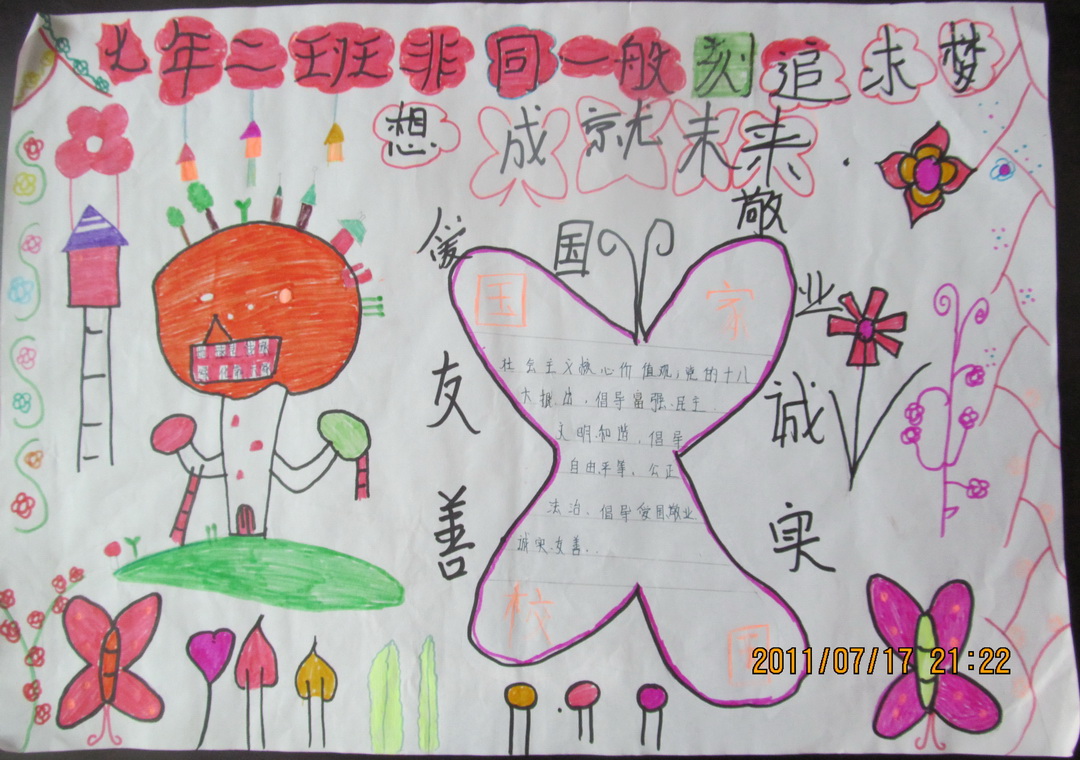 七年二班非同一般刻追求梦
想成就未来.
爱国敬业
诚实
友善
国家
社会主义核心价值观,党的十八
大提出,倡导富强、民主、
文明、和谐,倡导
自由平等、公正
法治、倡导爱国敬业
诚实、友善..
校
2011/07/17 21:22